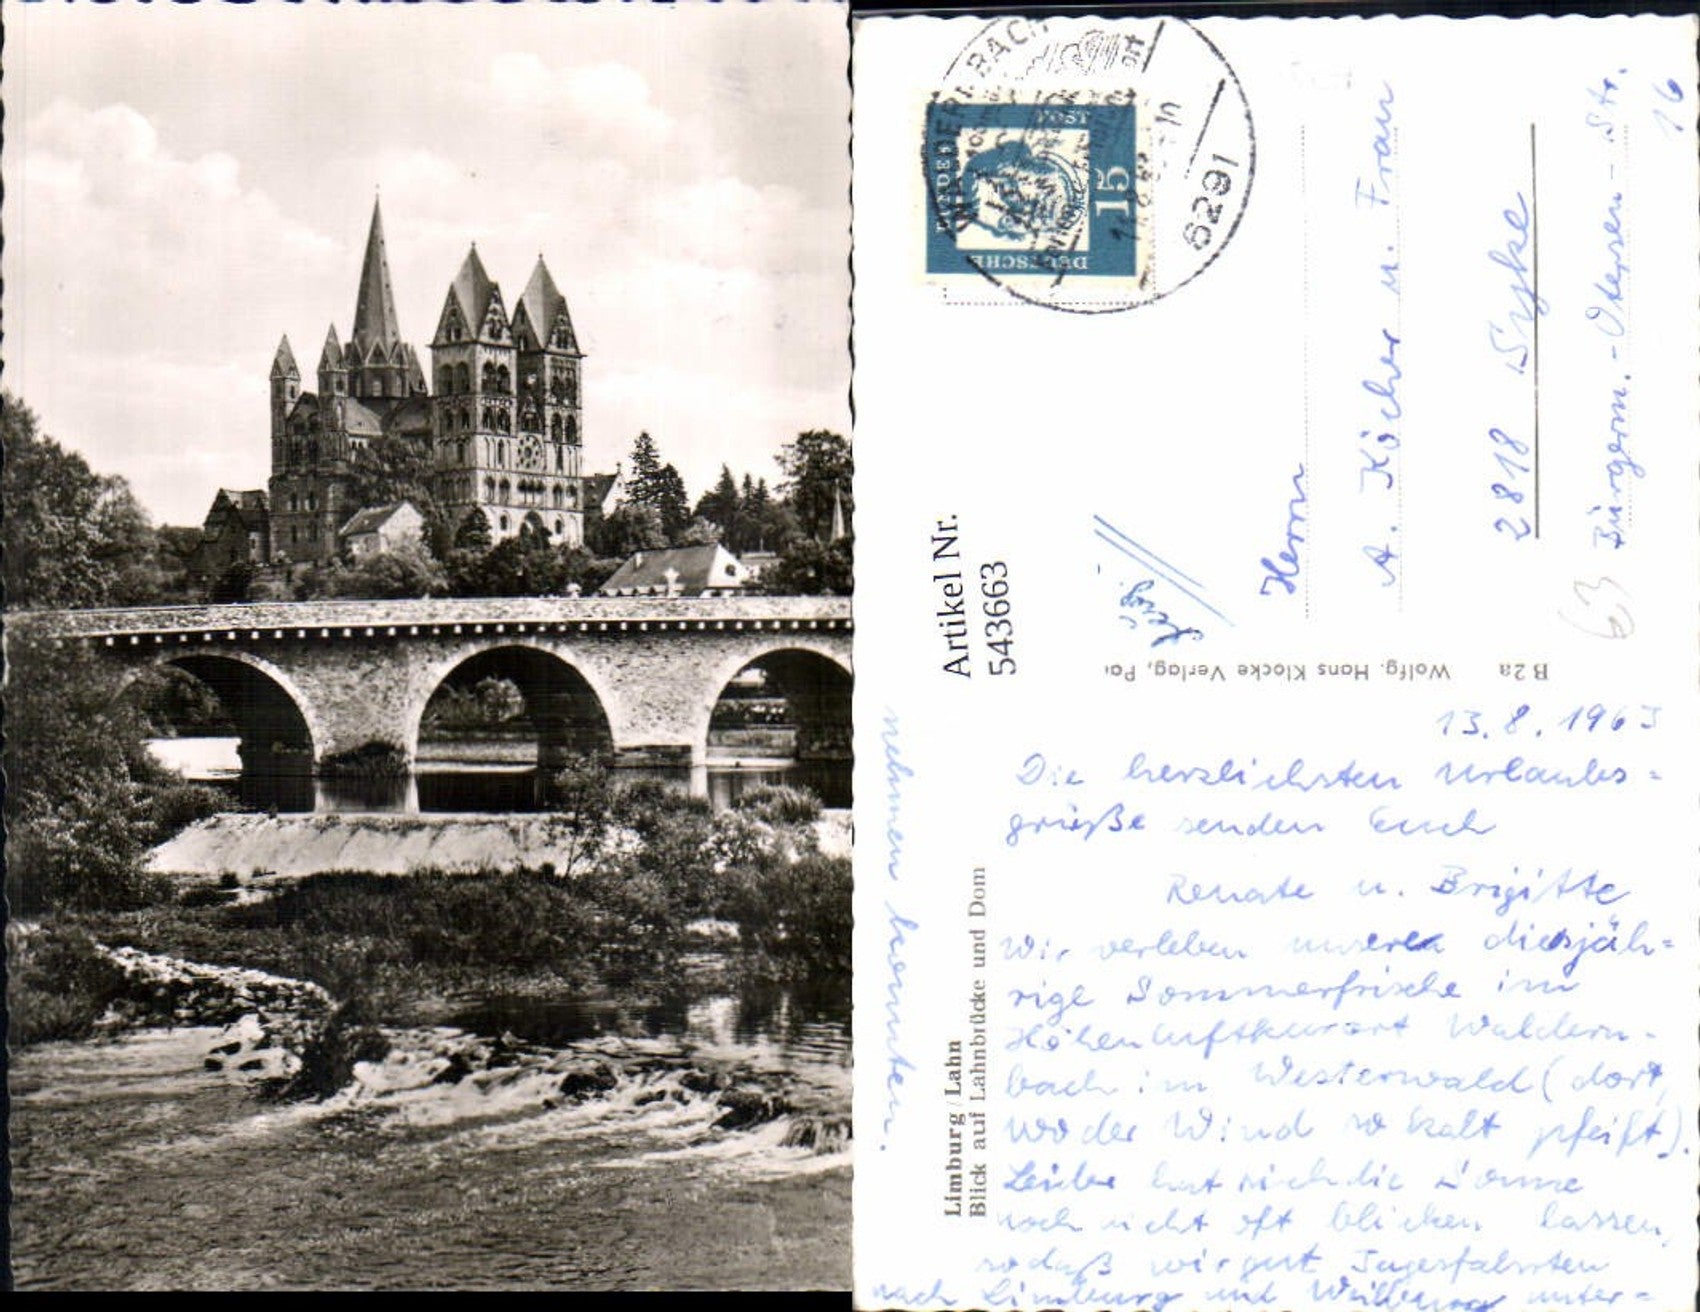 WALDERNBACH
6291
DEUTSCHE
BUNDESPOST
15
Artikel Nr.
543663
Herrn
A. Köcher u. Frau
2818 Syke
Bürgerm.-Osepsen-Str.
16
63
B 2a Wolfg. Hans Klocke Verlag, Pa
Limburg/Lahn
Blick auf Lahnbrücke und Dom
13.8.1963
Die herzlichsten Urlaubs=
grüße senden Euch
Renate u. Brigitte
Wir verleben unseren diesjäh=
rige Sommerfrische im
Höhenluftkurort Waldern-
bach im Westerwald (dort,
wo der Wind so kalt pfeift).
Leider hat sich die Sonne
noch nicht oft blicken lassen,
sodaß wir gut Tagesfahrten
nach Limburg und Weilburg unter=
nehmen konnten.